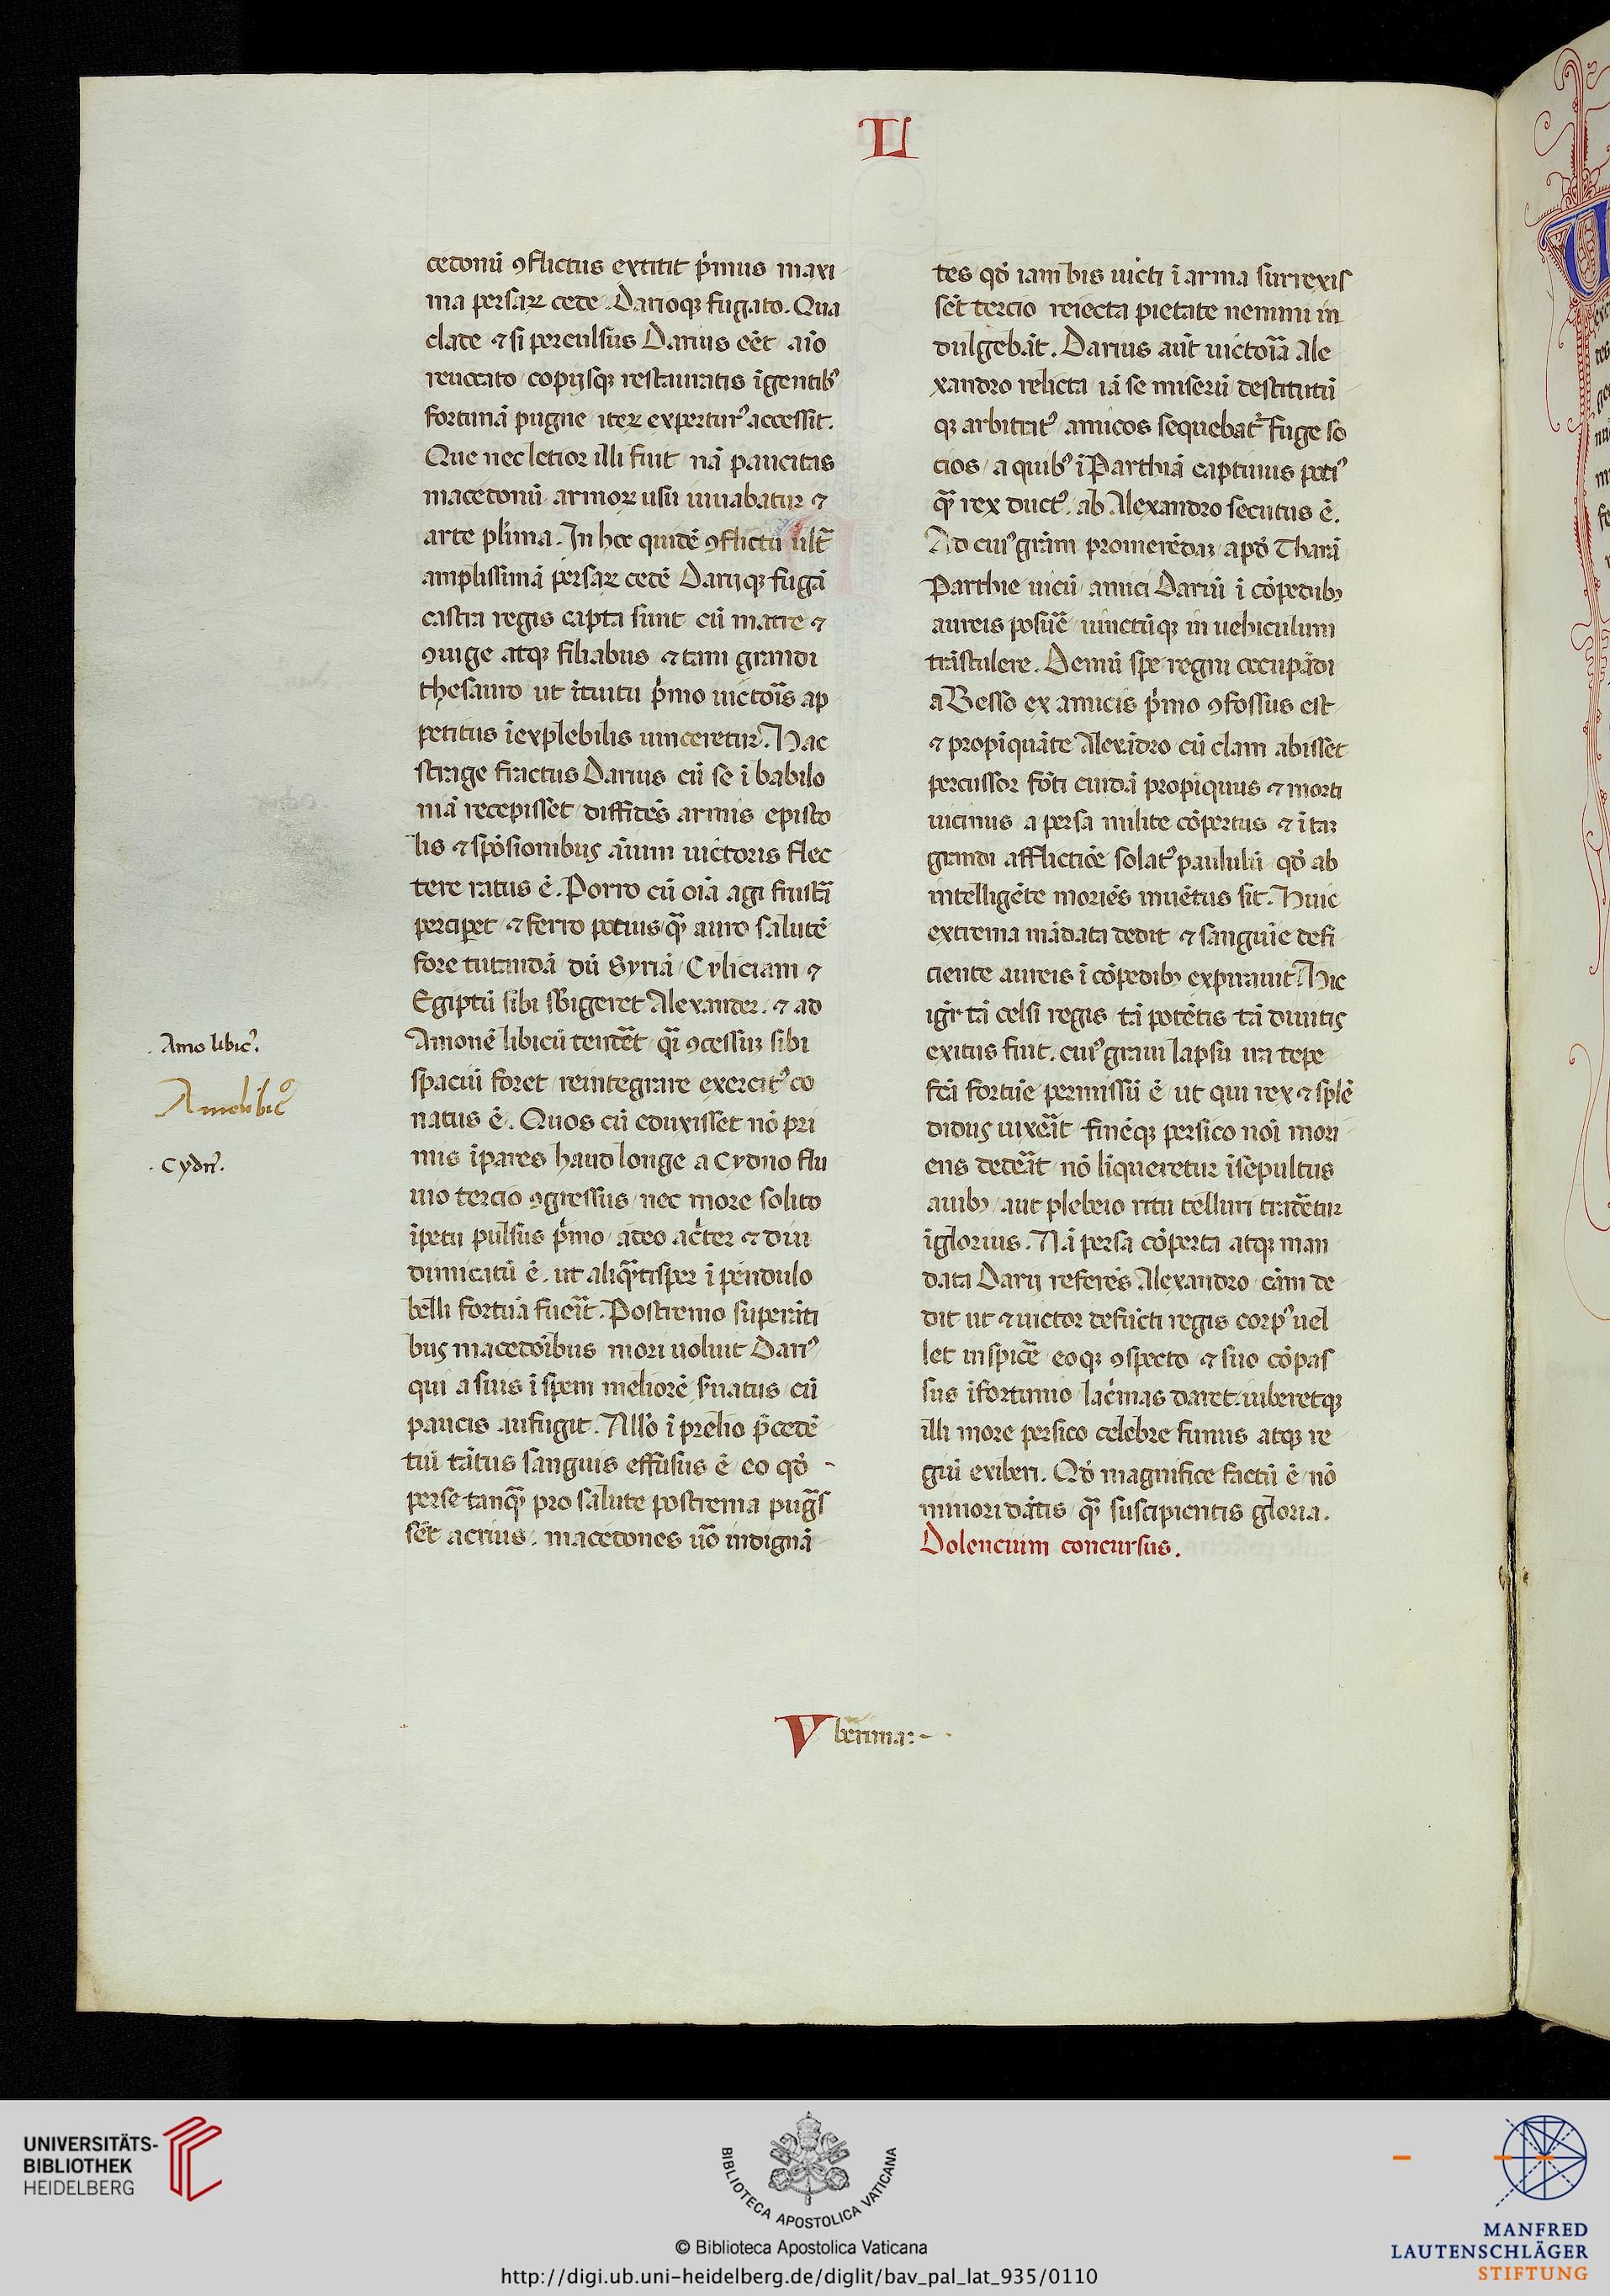 L
cedonũ ꝯflictus extitit p̍mus maxi
ma persaꝝ cede Darioqꝫ fugato. Qua
clade ⁊ si perculsus Darius eẽt aĩo
reuocato copijsqꝫ restauratis ĩgentibꝰ
fortunã pugne iteꝝ experturꝰ accessit.
Que nec letior illi fuit nã paucitas
macedonũ armoꝝ usu iuuabatur ⁊
arte plima. In hoc quidẽ ꝯflictu ult̃
amplissimã persaꝝ cedẽ Darijqꝫ fugã
castra regis capta sunt cũ matre ⁊
ꝯiuge atqꝫ filiabus ⁊ tam grandi
thesauro ut ĩtuitu p̍mo uictor̃is ap
petitus ĩexplebilis uinceretur. Hac
strage fractus Darius cũ se ĩ babilo
niã recepisset diffidẽs armis episto
lis ⁊ spõsionibus aĩum uictoris flec
tere ratus ẽ. Porro cũ oĩa agi frustã
perciꝑet ⁊ ferro potius qᷓ auro salutẽ
fore tutandã dũ Syriã Cyliciam ⁊
Egiptũ sibi sbigeret Alexander. ⁊ ad
Amonẽ libicũ tendẽt qᷓi ꝯcessuꝫ sibi
spaciũ foret reintegrare exercitꝰ co
natus ẽ. Quos cũ eduxisset nõ pri
mis ĩpares haud longe a Cydno flu
uio tercio ꝯgressus nec more solito
ĩpetu pulsus p̍mo adeo ac̍ter ⁊ diu
dimicatũ ẽ. ut aliqᷓtisper ĩ pendulo
belli fortũa fuẽit. Postremo superãti
bus macedõibus mori uoluit Dariꝰ
qui a suis ĩ spem meliorẽ suatus cũ
paucis aufugit. Allo ĩ prelio p̃cedẽ
tiũ tãtus sanguis effusus ẽ eo qđ
perse tanqᷓ pro salute postrema pugᷓs
sẽt acrius. macedones uõ indignã
tes qđ iam bis uicti ĩ arma surrexis
sẽt tercio reiecta pietate nemini in
dulgebãt. Darius aũt uictor̃ia Ale
xandro relicta iã se miserũ destitutũ
qꝫ arbitratꝰ amicos sequebat̃ fuge so
cios a quibꝰ ĩ Parthiã captiuus potiꝰ
qᷓ rex ductꝰ ab Alexandro secutus ẽ.
Ad cuiꝰ grãm promerẽdaꝫ apđ Tharã
Parthie uicũ amici Dariũ ĩ cõpedibꝫ
aureis posuẽ uinctũqꝫ in uehiculum
trãstulere. Demũ spe regni occupãdi
a Besso ex amicis p̍mo ꝯfossus est
⁊ propĩquãte Alexãdro cũ clam abisset
percussor fõti cuidã propĩquus ⁊ morti
uicinus a persa milite cõpertus ⁊ ĩ taꝫ
grandi afflictiõe solatꝰ paululũ qđ ab
intelligẽte moriẽs inuẽtus sit. Huic
extrema mãdata dedit ⁊ sanguĩe defi
ciente aureis ĩ cõpedibꝫ expirauit. Hic
igr̃ tã celsi regis tã potẽtis tã diuitis
exitus fuit. cuiꝰ graui lapsu ira repe
fcã fortũe permissũ ẽ ut qui rex ⁊ splẽ
didus uixẽit finẽqꝫ persico noĩ mori
ens dedẽit nõ liqueretur ĩsepultus
auibꝫ aut plebeio ritu telluri tradẽtur
ĩglorius. Nã persa cõperta atqꝫ man
data Darij referẽs Alexandro cãm de
dit ut ⁊ uictor defũcti regis corpꝰ uel
let inspicẽ eoqꝫ ꝯspecto ⁊ suo cõpas
sus ĩfortunio lac̍mas daret iuberetqꝫ
illi more persico celebre funus atqꝫ re
giũ exiberi. Qđ magnifice factũ ẽ nõ
minori dãtis qᷓ suscipientis gloria.
Dolencium concursus.
Amo libicꝰ.
Amo libicꝰ
Cydnꝰ.
Vberrima:-
UNIVERSITÄTS-
BIBLIOTHEK
HEIDELBERG
BIBLIOTECA APOSTOLICA VATICANA
© Biblioteca Apostolica Vaticana
http://digi.ub.uni-heidelberg.de/diglit/bav_pal_lat_935/0110
MANFRED
LAUTENSCHLÄGER
STIFTUNG